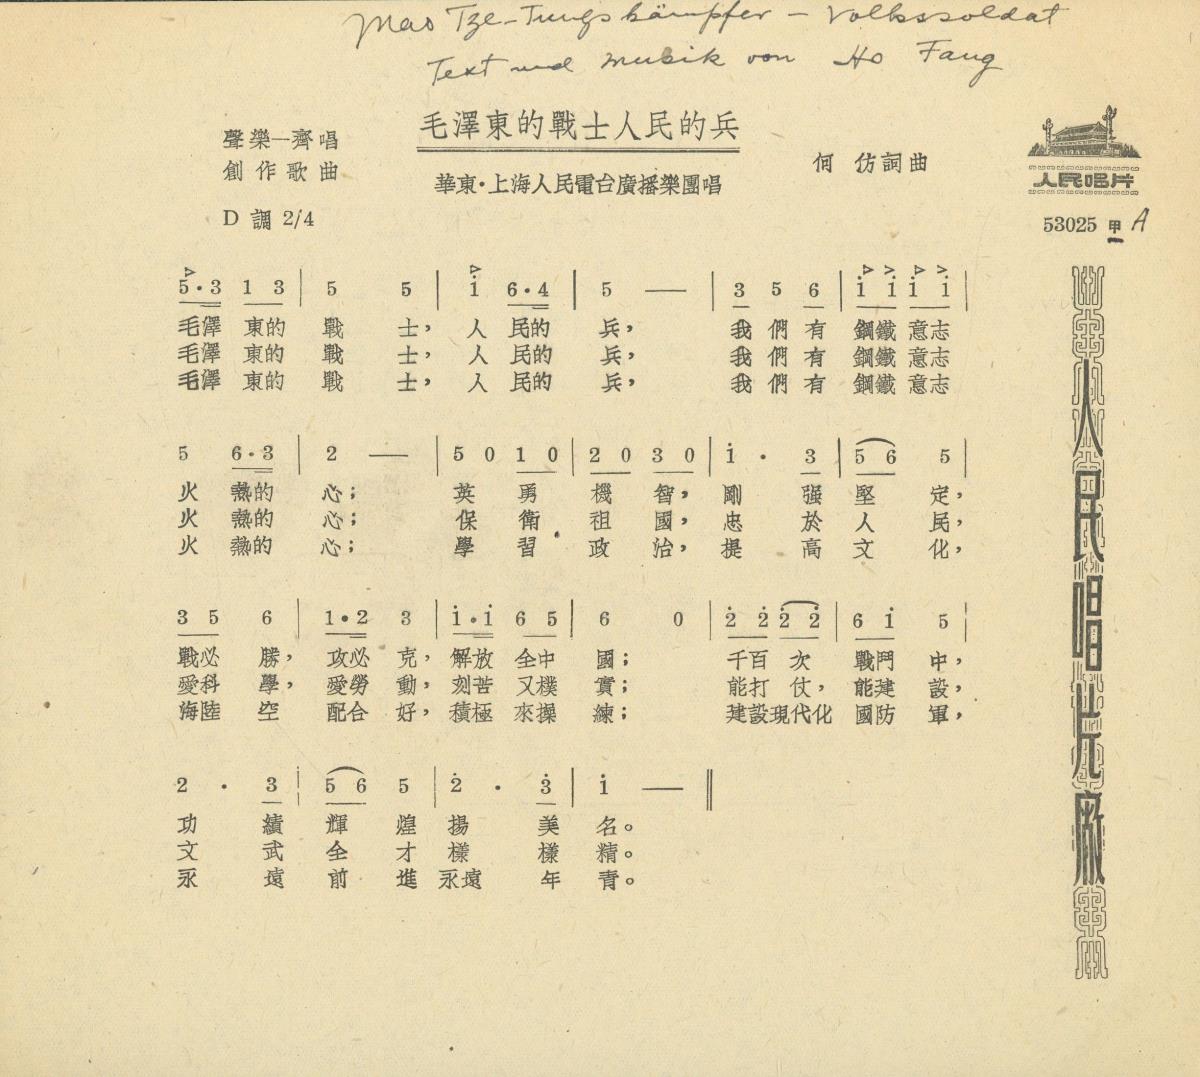 Mao Tze-Tungs kämpfer – Volkssoldat
Text und Musik von Ho Fang
毛澤東的戰士人民的兵
聲樂—齊唱
創作歌曲
何仿詞曲
華東·上海人民電台廣播樂團唱
D 調 2/4
人民唱片
53025 甲 A
5·3 1 3 | 5 5 | i 6·4 | 5 — | 3 5 6 | i i i i |
毛澤東的戰士，人民的兵，我們有鋼鐵意志
毛澤東的戰士，人民的兵，我們有鋼鐵意志
毛澤東的戰士，人民的兵，我們有鋼鐵意志
5 6·3 | 2 — | 5 0 1 0 | 2 0 3 0 | i · 3 | 5 6 5 |
火熱的心；英勇機智，剛强堅定，
火熱的心；保衛祖國，忠於人民，
火熱的心；學習政治，提高文化，
3 5 6 | 1·2 3 | i·i 6 5 | 6 0 | 2̇ 2̇ 2̇ 2̇ | 6 i 5 |
戰必勝，攻必克，解放全中國；千百次戰鬥中，
愛科學，愛勞動，刻苦又樸實；能打仗，能建設，
海陸空配合好，積極來操練；建設現代化國防軍，
2 · 3 | 5 6 5 | 2̇ · 3̇ | i — ‖
功績輝煌揚美名。
文武全才樣樣精。
永遠前進永遠年青。
人民唱片廠